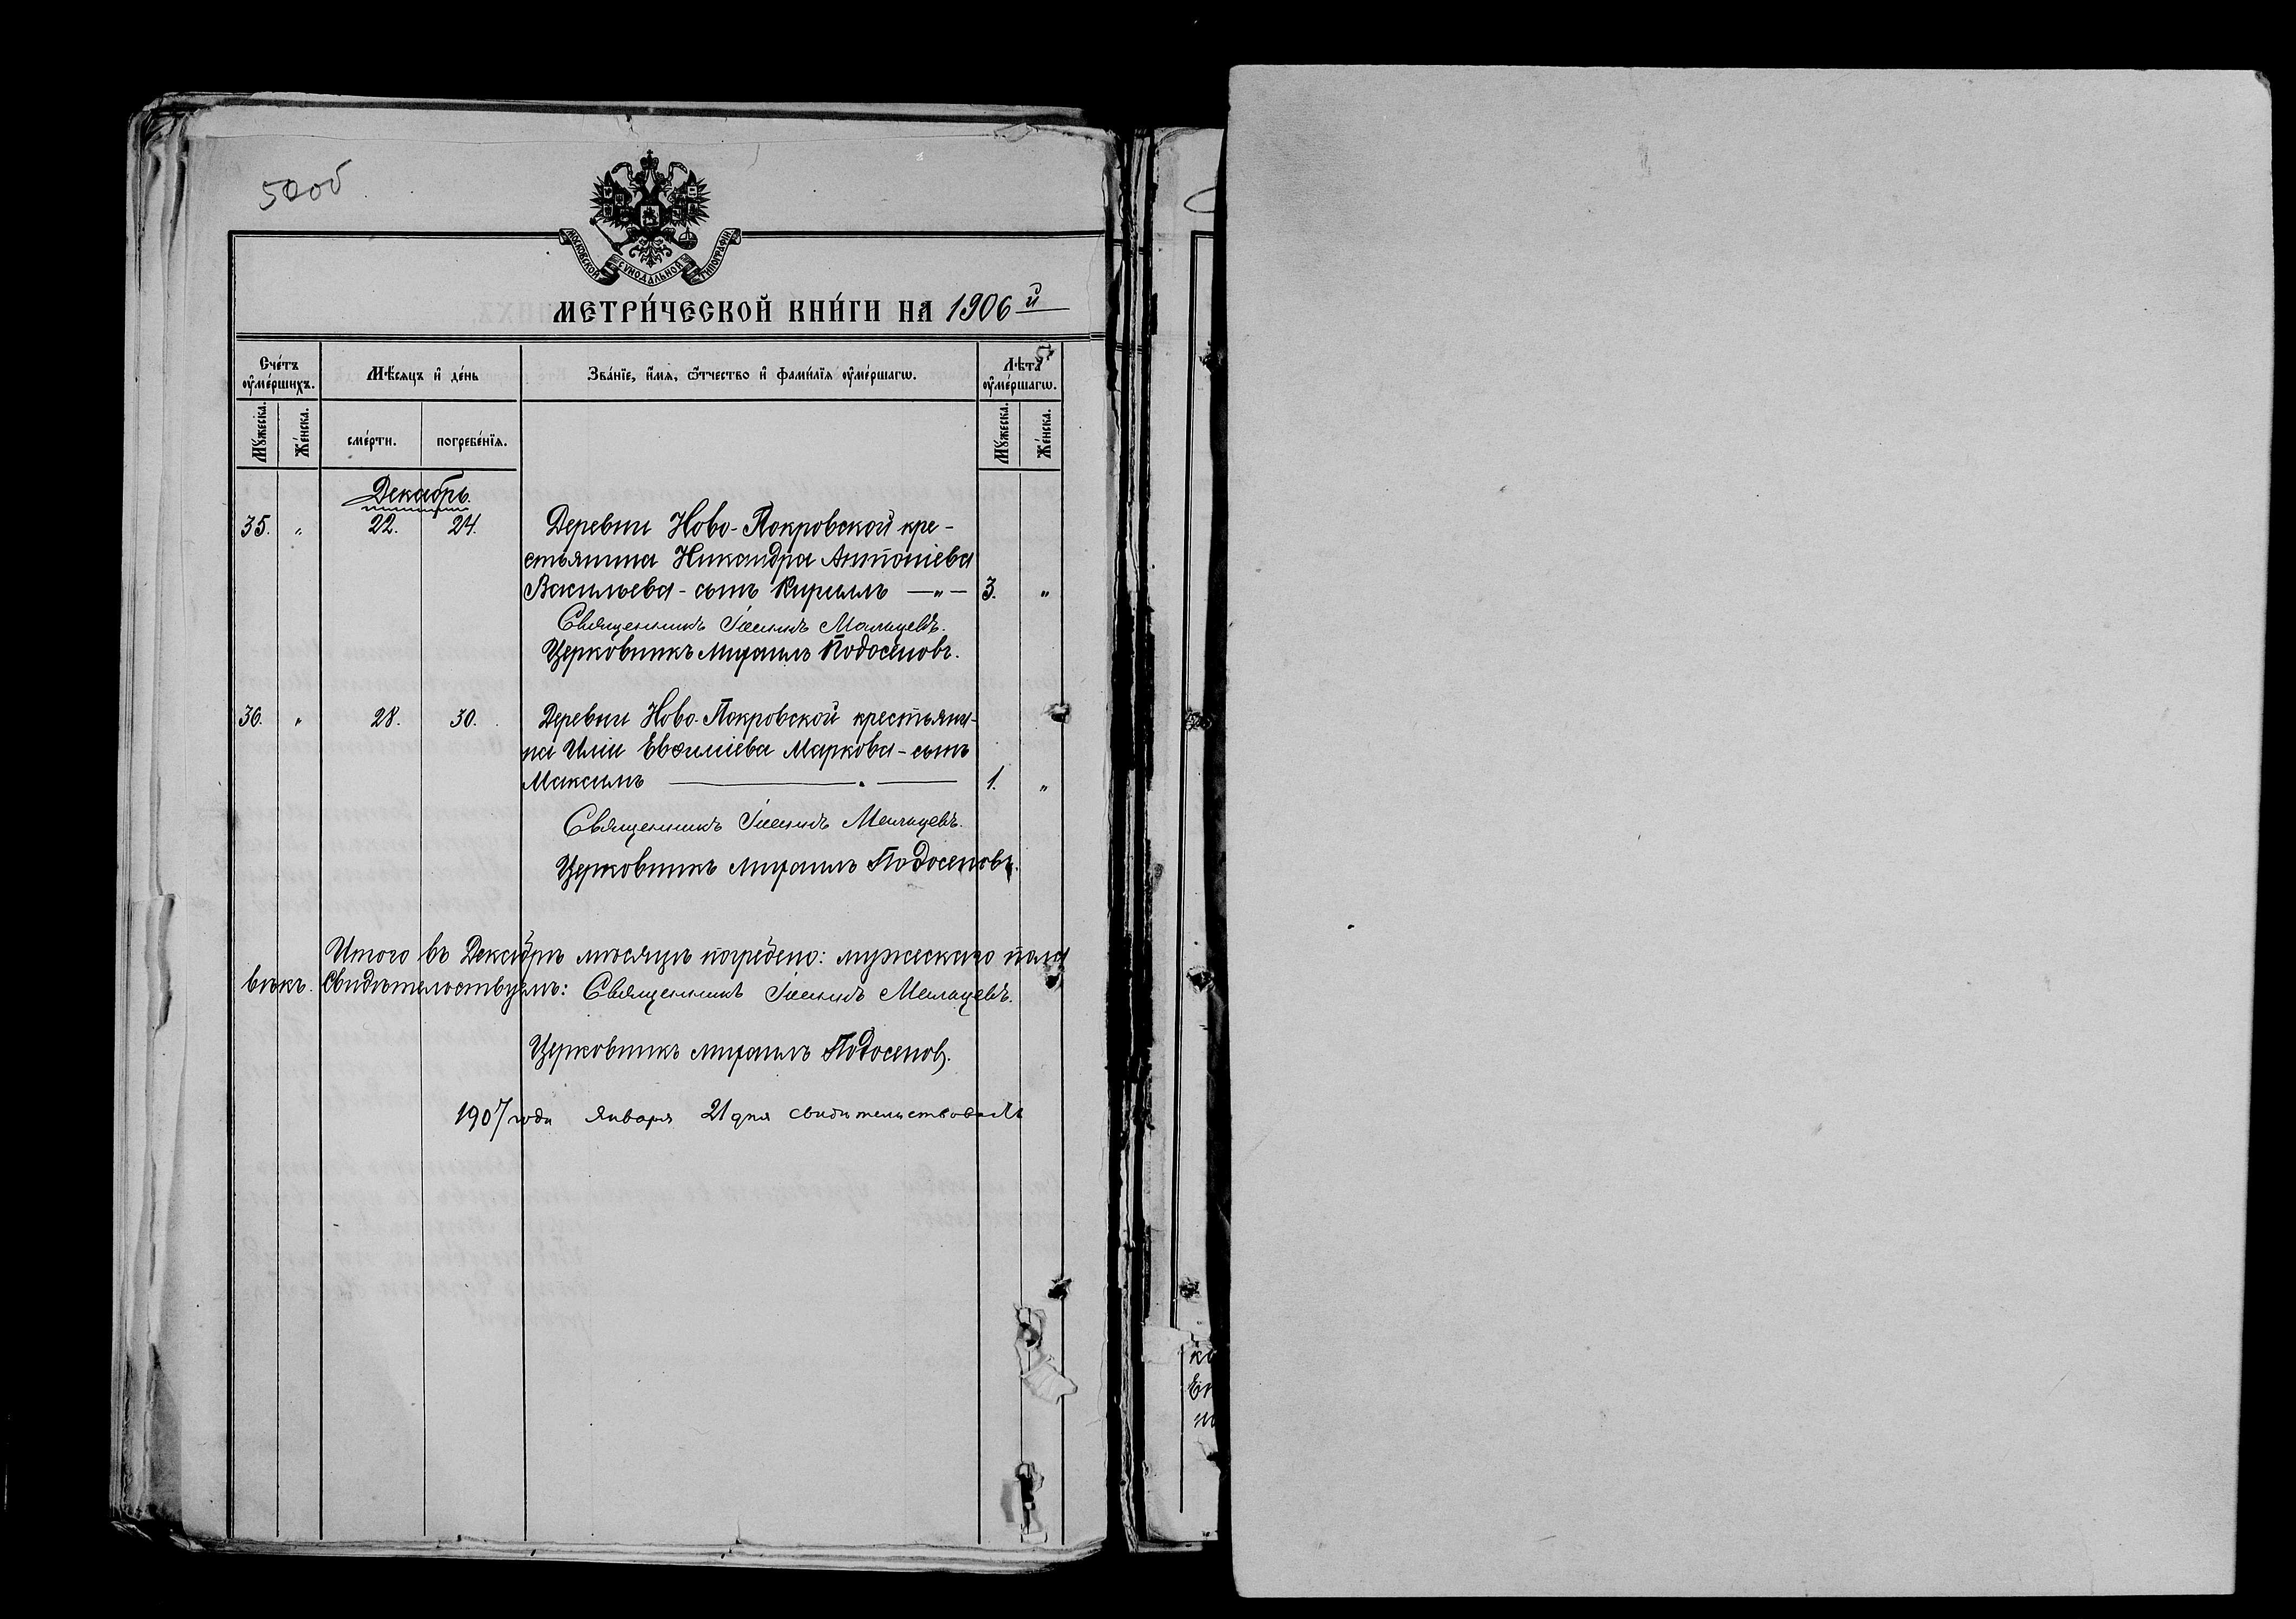 50об
МОСКОВСКОЙ СѴНОДАЛЬНОЙ ТИПОГРАФІИ
МЕТРИ́ЧЕСКОЙ КНИ́ГИ НА 1906й
Сче́тъ ᲂу҆ме́ршихъ.
Мѣ́сяцъ и҆ де́нь
Зва́нїе, и҆́мѧ, ѻ҆́тчество и҆ фами́лїѧ ᲂу҆ме́ршагѡ.
Лѣ́та ᲂу҆ме́ршагѡ.
Мꙋ́жеска.
Же́нска.
сме́рти.
погребе́нїѧ.
Мꙋ́жеска.
Же́нска.
Декабрь.
35. „ 22. 24. Деревни Ново-Покровской кре-
стьянина Никандра Антоніева
Васильева - сынъ Кириллъ —„— 3. „
Священникъ Іоаннъ Мальцевъ.
Церковникъ Михаилъ Подосеновъ.
36. „ 28. 30. Деревни Ново-Покровской крестьяни-
на Иліи Евѳиміева Маркова - сынъ
Максимъ 1. „
Священникъ Іоаннъ Мальцевъ.
Церковникъ Михаилъ Подосеновъ.
Итого въ Декабрѣ мѣсяцѣ погребено: мужескаго пола
вѣкъ. Свидѣтельствуемъ: Священникъ Іоаннъ Мальцевъ.
Церковникъ Михаилъ Подосенов.
1907 года января 21 дня свидѣтельствовалъ